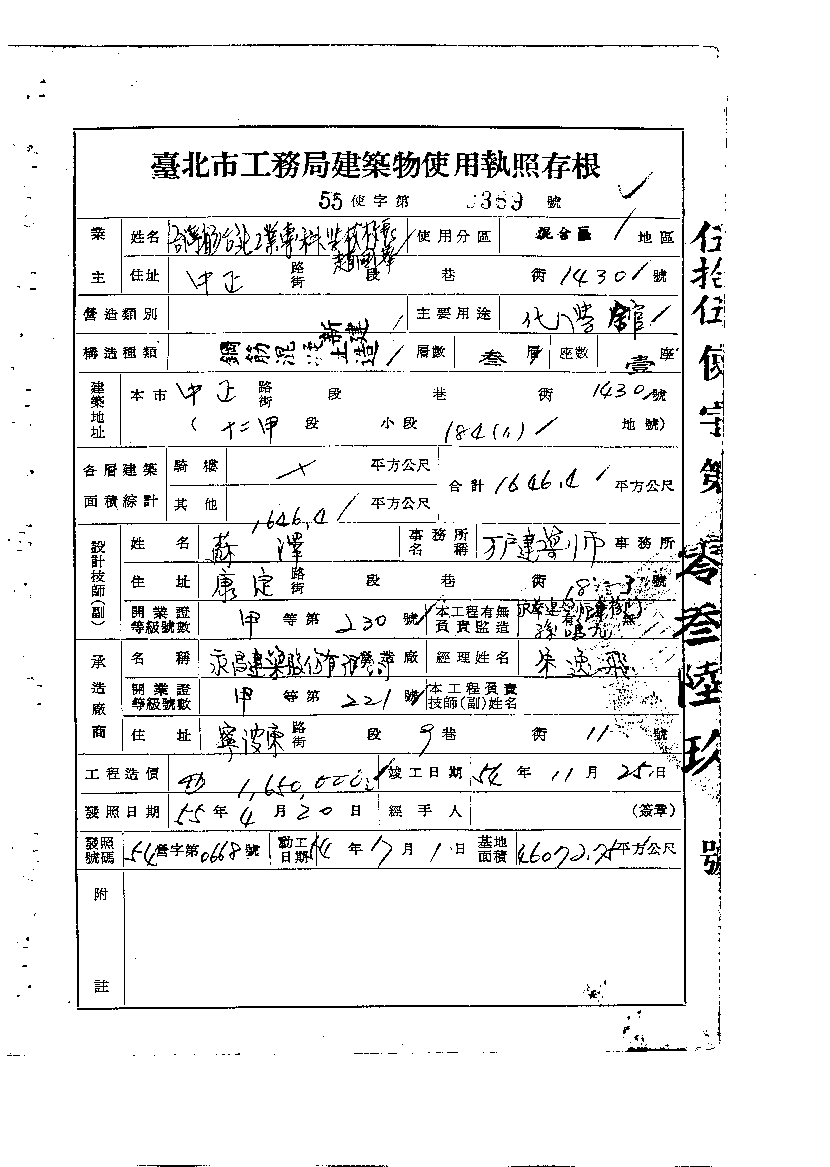 臺北市工務局建築物使用執照存根
55 使字第 0369 號
業主 姓名 台灣省台北工業專科學校校長 趙國華 使用分區 混合區 地區
住址 中正 路街 段 巷 衖 1430 號
營造類別 新建 主要用途 化學館
構造種類 鋼筋混泥土造 層數 叁 層 座數 壹 座
建築地址 本市 中正 路街 段 巷 衖 1430 號
( 十二甲 段 小段 184 地號)
各層建築面積綜計 騎樓 平方公尺 合計 1646.4 平方公尺
其他 1646.4 平方公尺
設計技師(副) 姓名 蘇澤 事務所名稱 建築師 事務所
住址 康定 路街 段 巷 衖 號
開業證等級號數 甲 等第 230 號 本工程有無負責監造 有 無
承造廠商 名稱 永昌建築股份有限公司 營業廠 經理姓名 朱逸飛
開業證等級號數 甲 等第 221 號 本工程負責技師(副)姓名
住址 寧波東 路街 段 9 巷 衖 11 號
工程造價 1,650,000 竣工日期 54 年 11 月 25 日
發照日期 55 年 4 月 20 日 經手人 (簽章)
發照號碼 54 營字第 0668 號 動工日期 54 年 月 1 日 基地面積 46072.75 平方公尺
附註
伍拾伍使字第零叁陸玖號